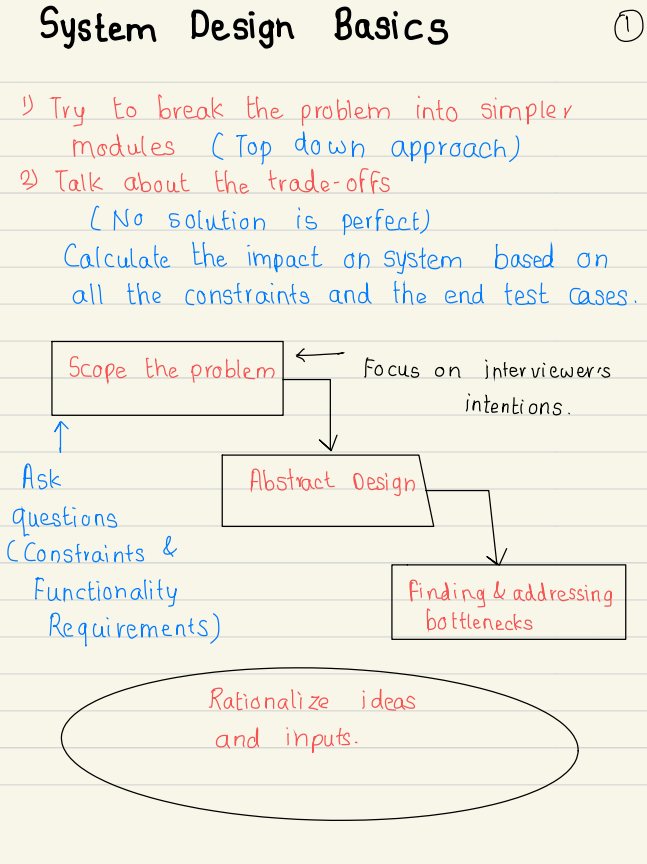 System Design Basics
1
1) Try to break the problem into simpler
modules (Top down approach)
2) Talk about the trade-offs
(No solution is perfect)
Calculate the impact on system based on
all the constraints and the end test cases.
Scope the problem
Focus on interviewer's
intentions.
Ask
questions
(Constraints &
Functionality
Requirements)
Abstract Design
Finding & addressing
bottlenecks
Rationalize ideas
and inputs.